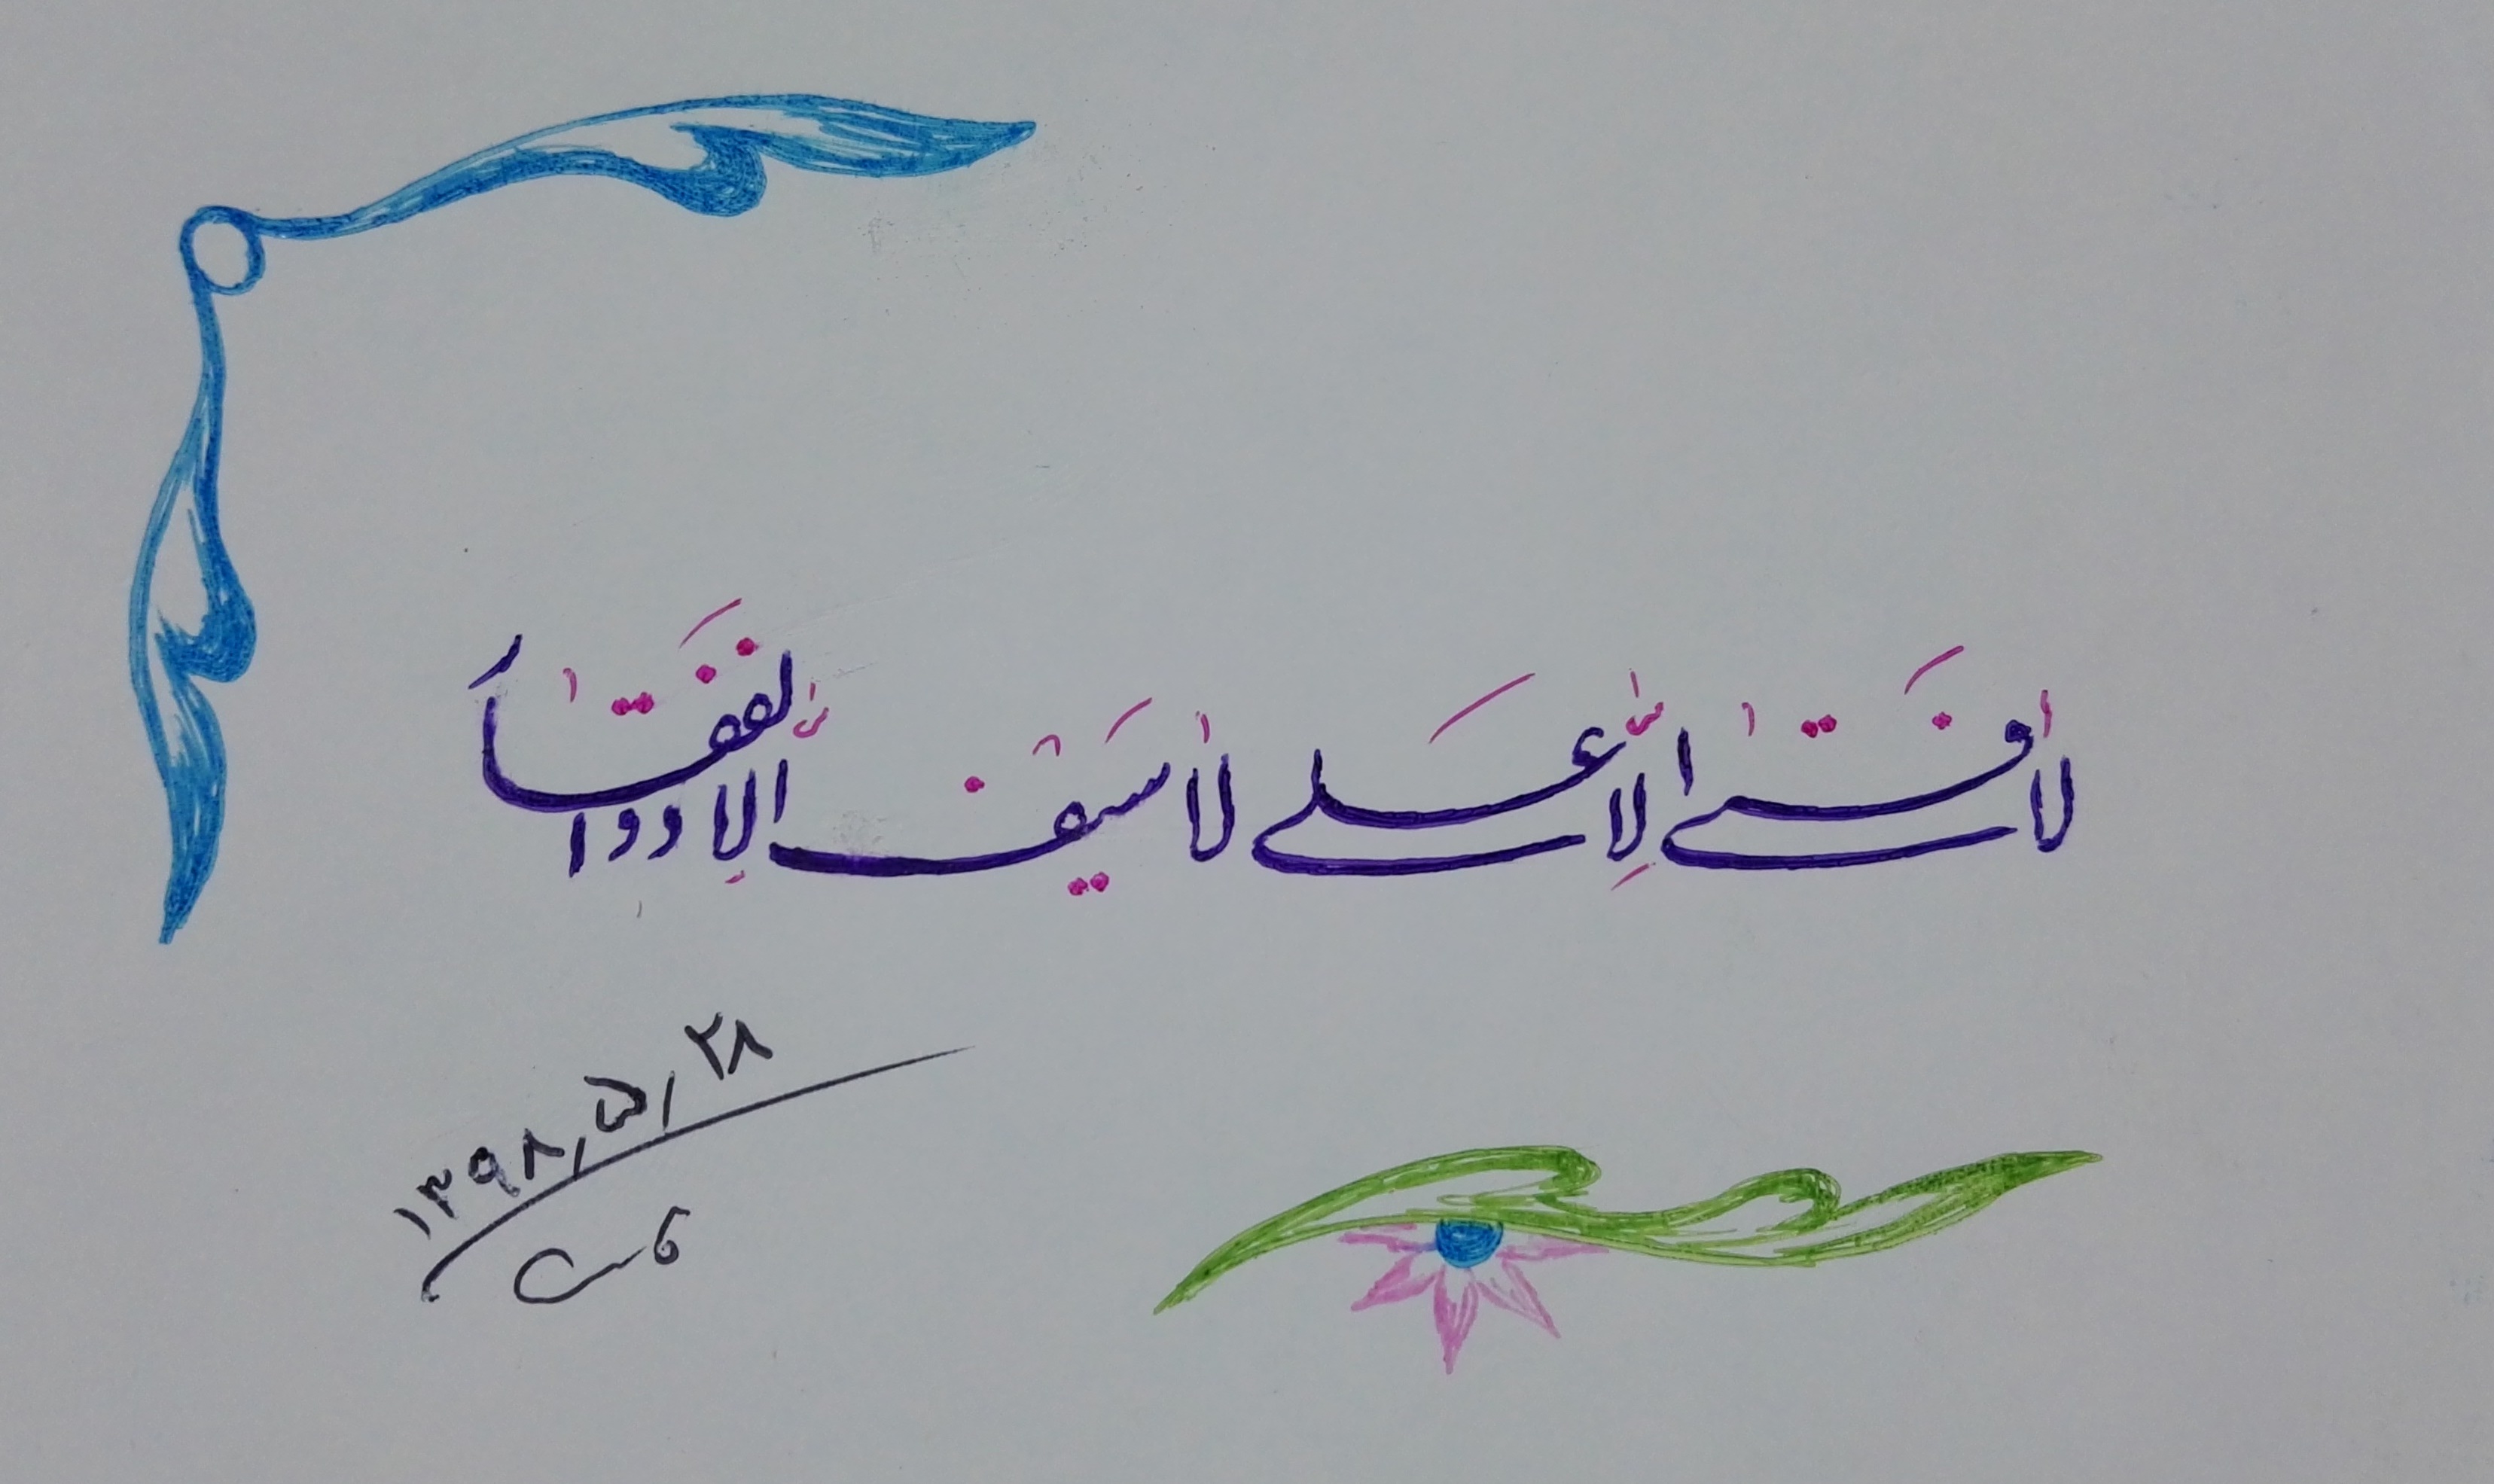 لاٰ فَتىٰ اِلّاٰ عَلی لاٰ سَیْف اِلّاٰ ذوالفَقٰار
۱۳۹۸٫۵٫۲۸